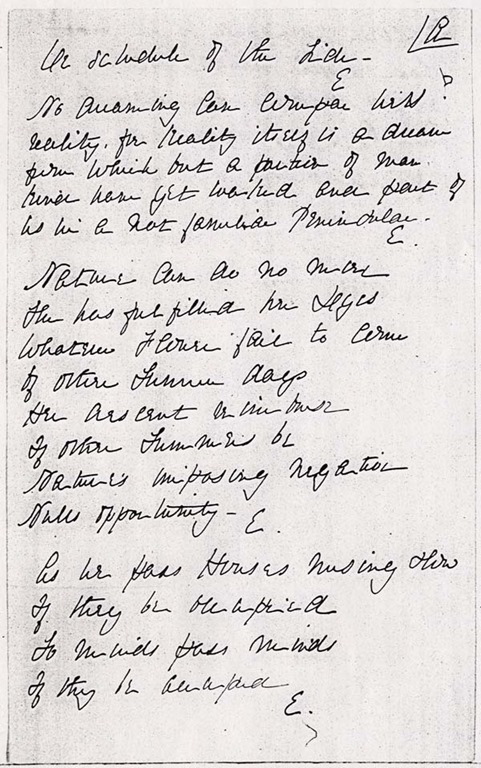 Or schedule of the Tide -
E
No dreaming can compare with
reality, for Reality itself is a dream
from which but a portion of man
kind have yet waked and part of
us is a not familiar Peninsula -
E.
Nature can do no more
She has fulfilled her Dyes
Whatever Flower fail to come
Of other Summer days
Her crescent reimburse
If other Summers be
Nature's imposing negation
Nulls opportunity -
E.
As we pass Houses musing slow
If they be occupied
So minds pass minds
If they be occupied
E.